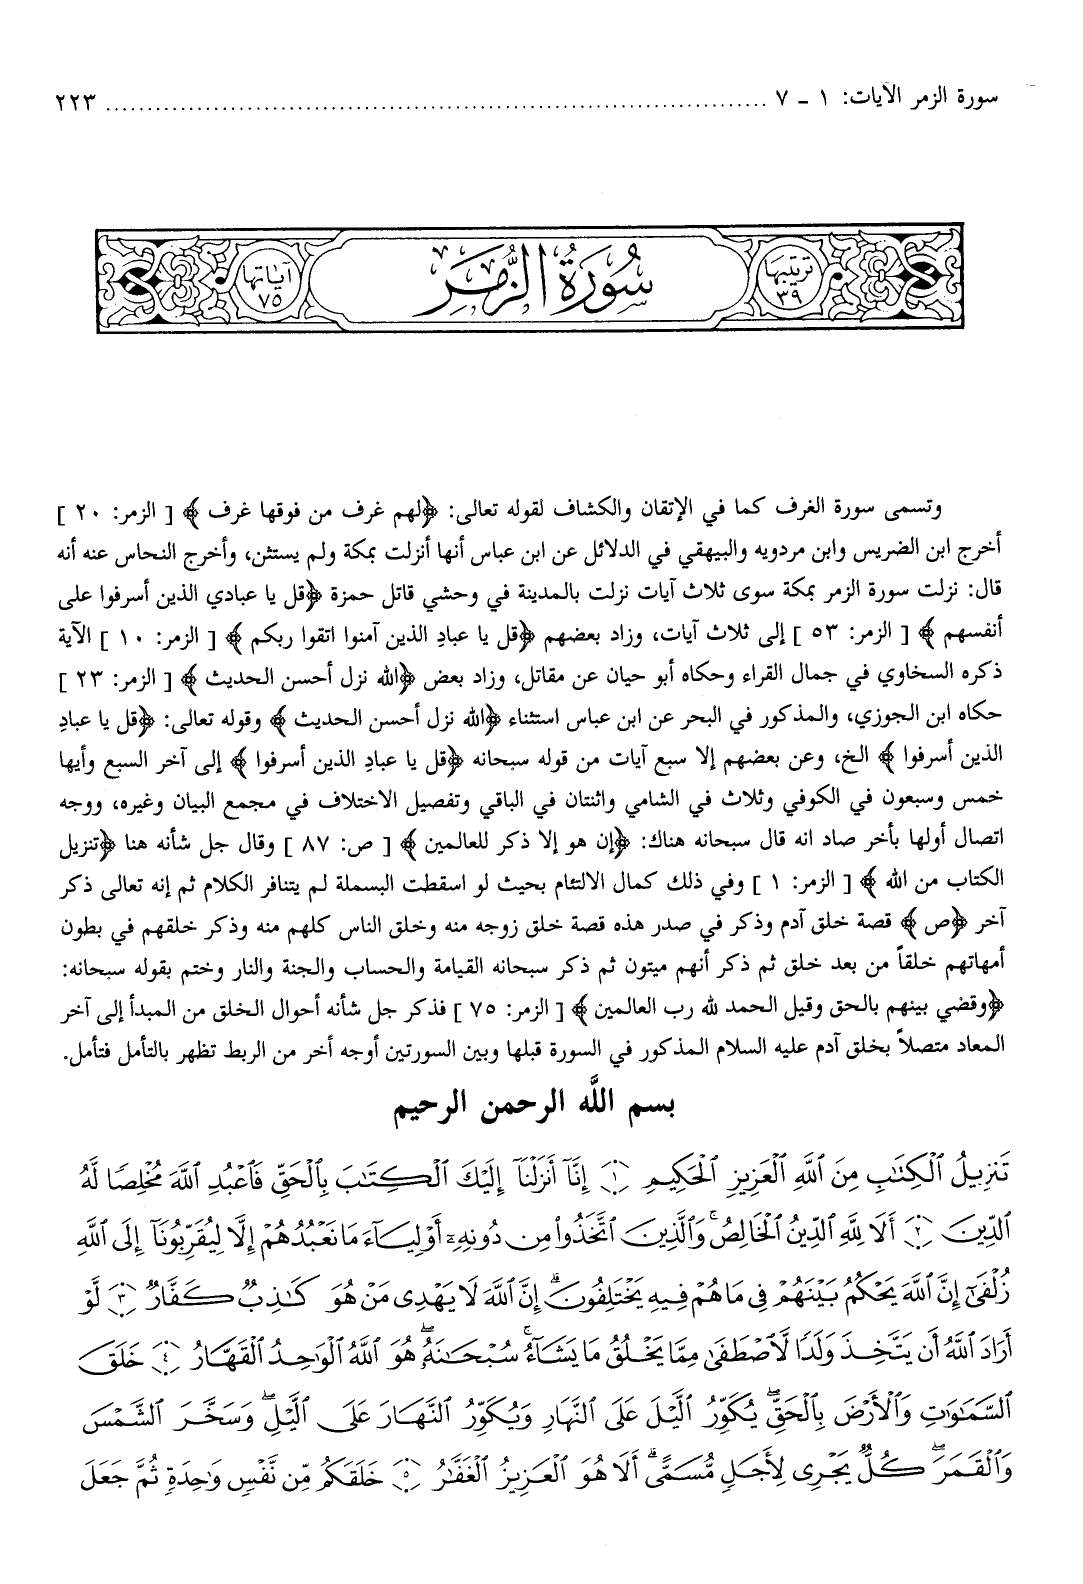 سورة الزمر الآيات: ١ ـ ٧ ........................................................................ ٢٢٣
ترتيبها ٣٩
سُورَةُ الزُّمَر
آياتها ٧٥
وتسمى سورة الغرف كما في الإتقان والكشاف لقوله تعالى: ﴿لهم غرف من فوقها غرف ﴾ [ الزمر: ٢٠ ]
أخرج ابن الضريس وابن مردويه والبيهقي في الدلائل عن ابن عباس أنها أنزلت بمكة ولم يستثن، وأخرج النحاس عنه أنه
قال: نزلت سورة الزمر بمكة سوى ثلاث آيات نزلت بالمدينة في وحشي قاتل حمزة ﴿قل يا عبادي الذين أسرفوا على
أنفسهم ﴾ [ الزمر: ٥٣ ] إلى ثلاث آيات، وزاد بعضهم ﴿قل يا عبادِ الذين آمنوا اتقوا ربكم ﴾ [ الزمر: ١٠ ] الآية
ذكره السخاوي في جمال القراء وحكاه أبو حيان عن مقاتل، وزاد بعض ﴿الله نزل أحسن الحديث ﴾ [ الزمر: ٢٣ ]
حكاه ابن الجوزي، والمذكور في البحر عن ابن عباس استثناء ﴿الله نزل أحسن الحديث ﴾ وقوله تعالى: ﴿قل يا عبادِ
الذين أسرفوا ﴾ الخ، وعن بعضهم إلا سبع آيات من قوله سبحانه ﴿قل يا عبادِ الذين أسرفوا ﴾ إلى آخر السبع وأيها
خمس وسبعون في الكوفي وثلاث في الشامي واثنتان في الباقي وتفصيل الاختلاف في مجمع البيان وغيره، ووجه
اتصال أولها بأخر صاد انه قال سبحانه هناك: ﴿إن هو إلا ذكر للعالمين ﴾ [ ص: ٨٧ ] وقال جل شأنه هنا ﴿تنزيل
الكتاب من الله ﴾ [ الزمر: ١ ] وفي ذلك كمال الالتئام بحيث لو اسقطت البسملة لم يتنافر الكلام ثم إنه تعالى ذكر
آخر ﴿ص ﴾ قصة خلق آدم وذكر في صدر هذه قصة خلق زوجه منه وخلق الناس كلهم منه وذكر خلقهم في بطون
أمهاتهم خلقاً من بعد خلق ثم ذكر أنهم ميتون ثم ذكر سبحانه القيامة والحساب والجنة والنار وختم بقوله سبحانه:
﴿وقضي بينهم بالحق وقيل الحمد لله رب العالمين ﴾ [ الزمر: ٧٥ ] فذكر جل شأنه أحوال الخلق من المبدأ إلى آخر
المعاد متصلاً بخلق آدم عليه السلام المذكور في السورة قبلها وبين السورتين أوجه أخر من الربط تظهر بالتأمل فتأمل.
بسم اللَّه الرحمن الرحيم
تَنزِيلُ ٱلْكِتَٰبِ مِنَ ٱللَّهِ ٱلْعَزِيزِ ٱلْحَكِيمِ ۝١ إِنَّآ أَنزَلْنَآ إِلَيْكَ ٱلْكِتَٰبَ بِٱلْحَقِّ فَٱعْبُدِ ٱللَّهَ مُخْلِصًا لَّهُ
ٱلدِّينَ ۝٢ أَلَا لِلَّهِ ٱلدِّينُ ٱلْخَالِصُ ۚ وَٱلَّذِينَ ٱتَّخَذُوا۟ مِن دُونِهِۦٓ أَوْلِيَآءَ مَا نَعْبُدُهُمْ إِلَّا لِيُقَرِّبُونَآ إِلَى ٱللَّهِ
زُلْفَىٰٓ إِنَّ ٱللَّهَ يَحْكُمُ بَيْنَهُمْ فِى مَا هُمْ فِيهِ يَخْتَلِفُونَ ۗ إِنَّ ٱللَّهَ لَا يَهْدِى مَنْ هُوَ كَٰذِبٌ كَفَّارٌ ۝٣ لَّوْ
أَرَادَ ٱللَّهُ أَن يَتَّخِذَ وَلَدًا لَّٱصْطَفَىٰ مِمَّا يَخْلُقُ مَا يَشَآءُ ۚ سُبْحَٰنَهُۥ ۖ هُوَ ٱللَّهُ ٱلْوَٰحِدُ ٱلْقَهَّارُ ۝٤ خَلَقَ
ٱلسَّمَٰوَٰتِ وَٱلْأَرْضَ بِٱلْحَقِّ ۖ يُكَوِّرُ ٱلَّيْلَ عَلَى ٱلنَّهَارِ وَيُكَوِّرُ ٱلنَّهَارَ عَلَى ٱلَّيْلِ ۖ وَسَخَّرَ ٱلشَّمْسَ
وَٱلْقَمَرَ ۖ كُلٌّ يَجْرِى لِأَجَلٍ مُّسَمًّى ۗ أَلَا هُوَ ٱلْعَزِيزُ ٱلْغَفَّٰرُ ۝٥ خَلَقَكُم مِّن نَّفْسٍ وَٰحِدَةٍ ثُمَّ جَعَلَ